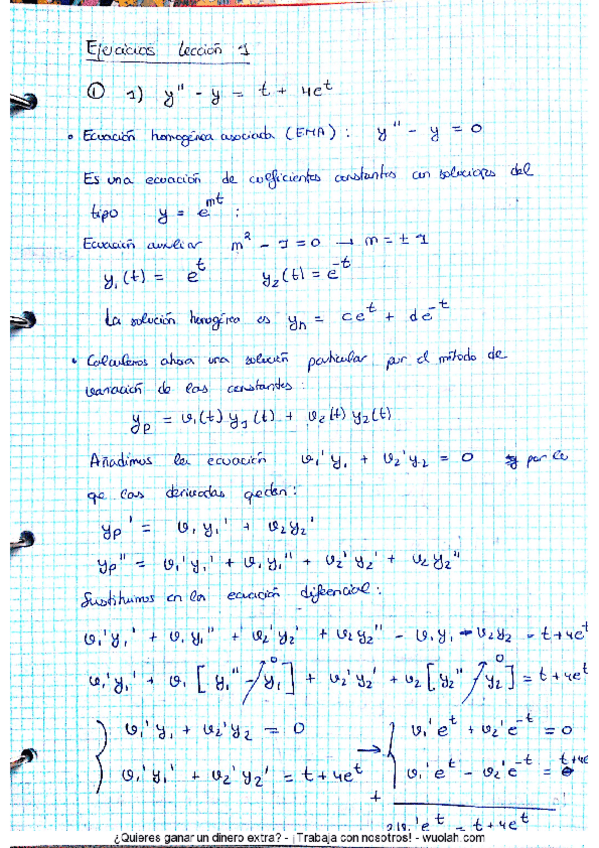 Ejercicios Lección 1
① 1) y'' - y = t + 4e^t
• Ecuación homogénea asociada (EHA) : y'' - y = 0
Es una ecuación de coeficientes constantes con soluciones del
tipo y = e^mt :
Ecuación auxiliar m² - 1 = 0 → m = ± 1
y₁(t) = e^t y₂(t) = e^-t
La solución homogénea es yₕ = ce^t + de^-t
• Calculemos ahora una solución particular por el método de
variación de las constantes:
yp = v₁(t) y₁(t) + v₂(t) y₂(t)
Añadimos la ecuación v₁'y₁ + v₂'y₂ = 0 por lo
qe las derivadas qedan:
yp' = v₁y₁' + v₂y₂'
yp'' = v₁'y₁' + v₁y₁'' + v₂'y₂' + v₂y₂''
Sustituimos en la ecuación diferencial:
v₁'y₁' + v₁y₁'' + v₂'y₂' + v₂y₂'' - v₁y₁ - v₂y₂ = t+4e^t
v₁'y₁' + v₁[y₁'' - y₁] + v₂'y₂' + v₂[y₂'' - y₂] = t+4e^t
v₁'y₁ + v₂'y₂ = 0 → v₁'e^t + v₂'e^-t = 0
v₁'y₁' + v₂'y₂' = t+4e^t v₁'e^t - v₂'e^-t = t+4e
+
e^t = t+4e^t
¿Quieres ganar un dinero extra? - ¡Trabaja con nosotros! - wuolah.com